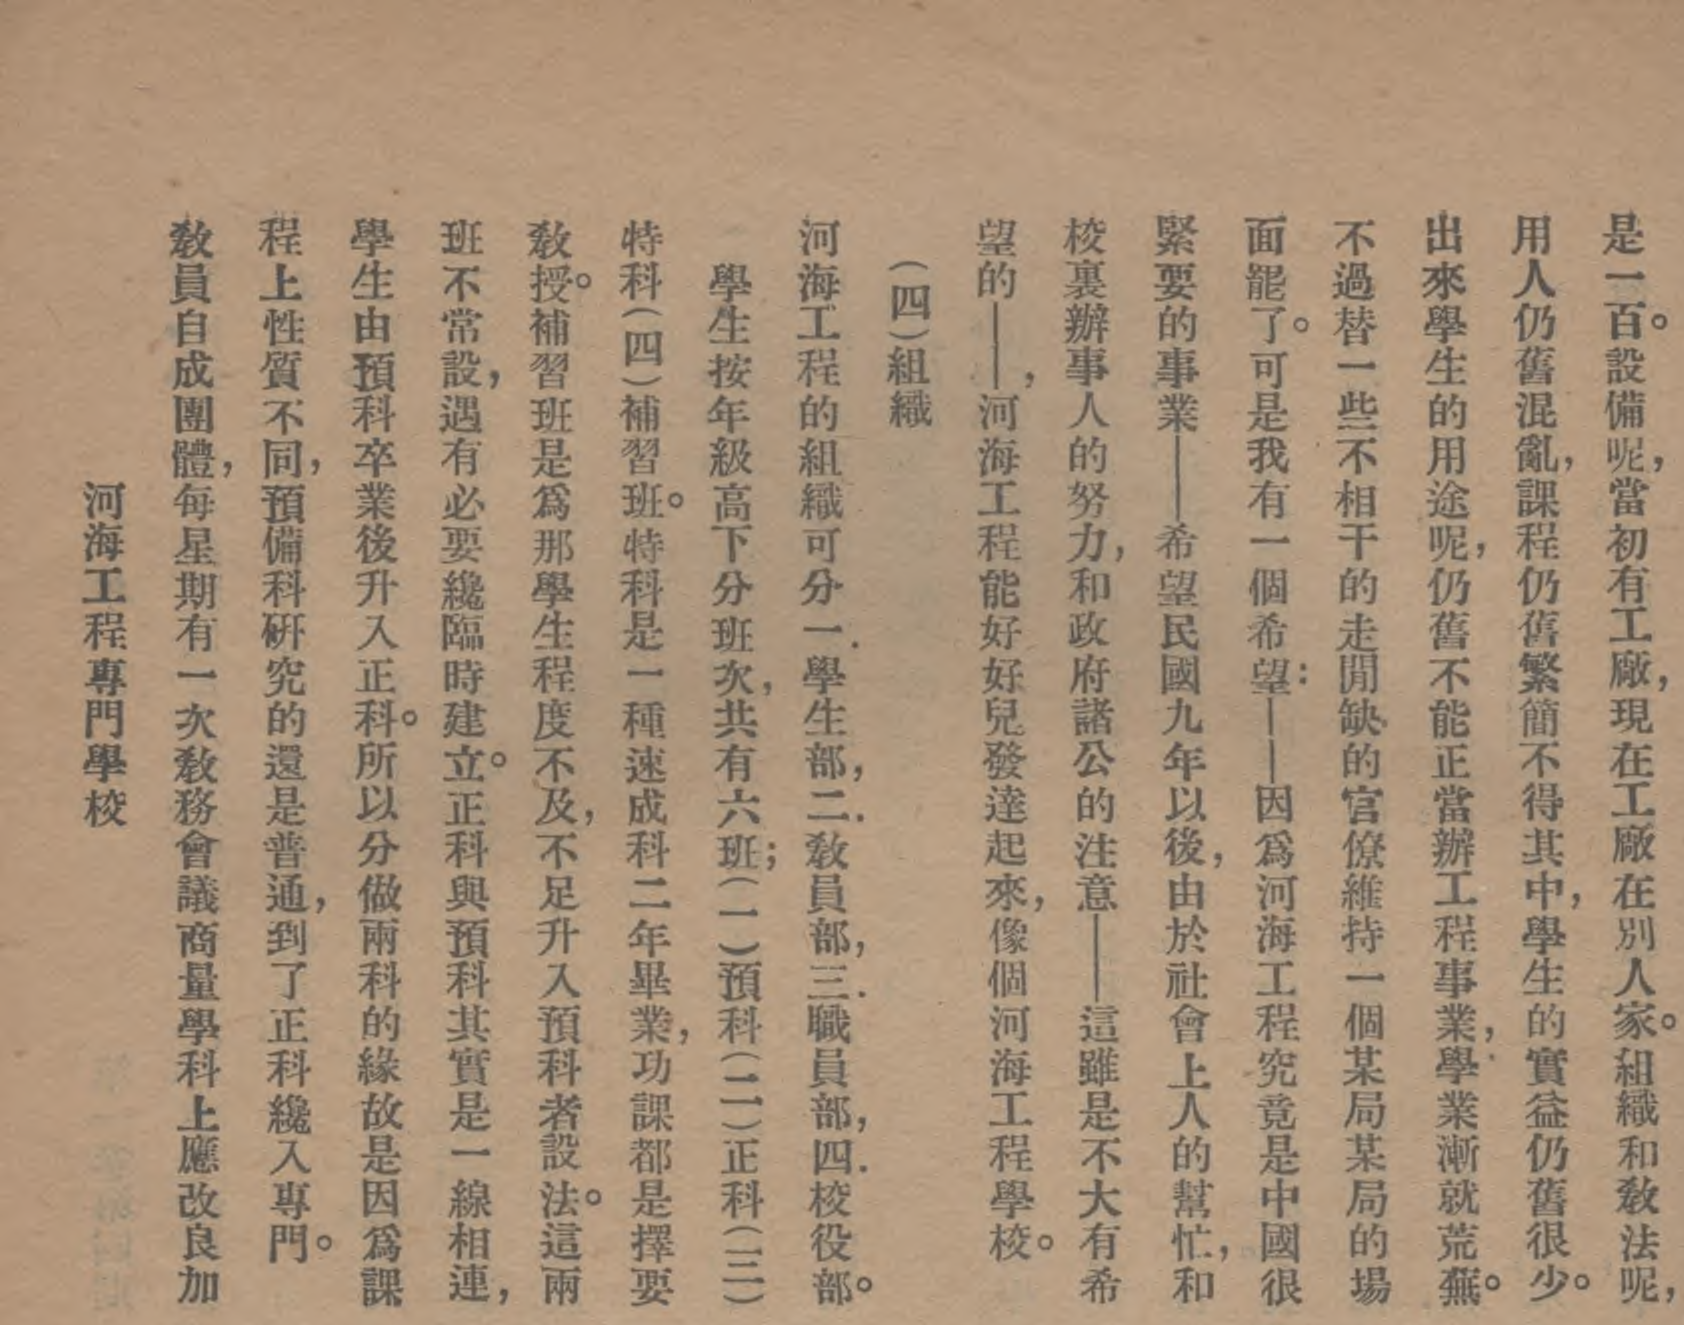 是一百。設備呢，當初有工廠，現在工廠在別人家。組織和教法呢，
用人仍舊混亂，課程仍舊繁簡不得其中，學生的實益仍舊很少。
出來學生的用途呢，仍舊不能正當辦工程事業，學業漸就荒蕪。
不過替一些不相干的走閒缺的官僚維持一個某局某局的場
面罷了。可是我有一個希望：——因爲河海工程究竟是中國很
緊要的事業——希望民國九年以後，由於社會上人的幫忙，和
校裏辦事人的努力，和政府諸公的注意——這雖是不大有希
望的——，河海工程能好好兒發達起來，像個河海工程學校。
（四）組織
河海工程的組織可分一．學生部，二．敎員部，三．職員部，四．校役部。
學生按年級高下分班次，共有六班；（一）預科（二）正科（三）
特科（四）補習班。特科是一種速成科二年畢業，功課都是擇要
敎授。補習班是爲那學生程度不及，不足升入預科者設法。這兩
班不常設，遇有必要纔臨時建立。正科與預科其實是一線相連，
學生由預科卒業後升入正科。所以分做兩科的緣故是因爲課
程上性質不同，預備科硏究的還是普通，到了正科纔入專門。
敎員自成團體，每星期有一次敎務會議商量學科上應改良加
河海工程專門學校